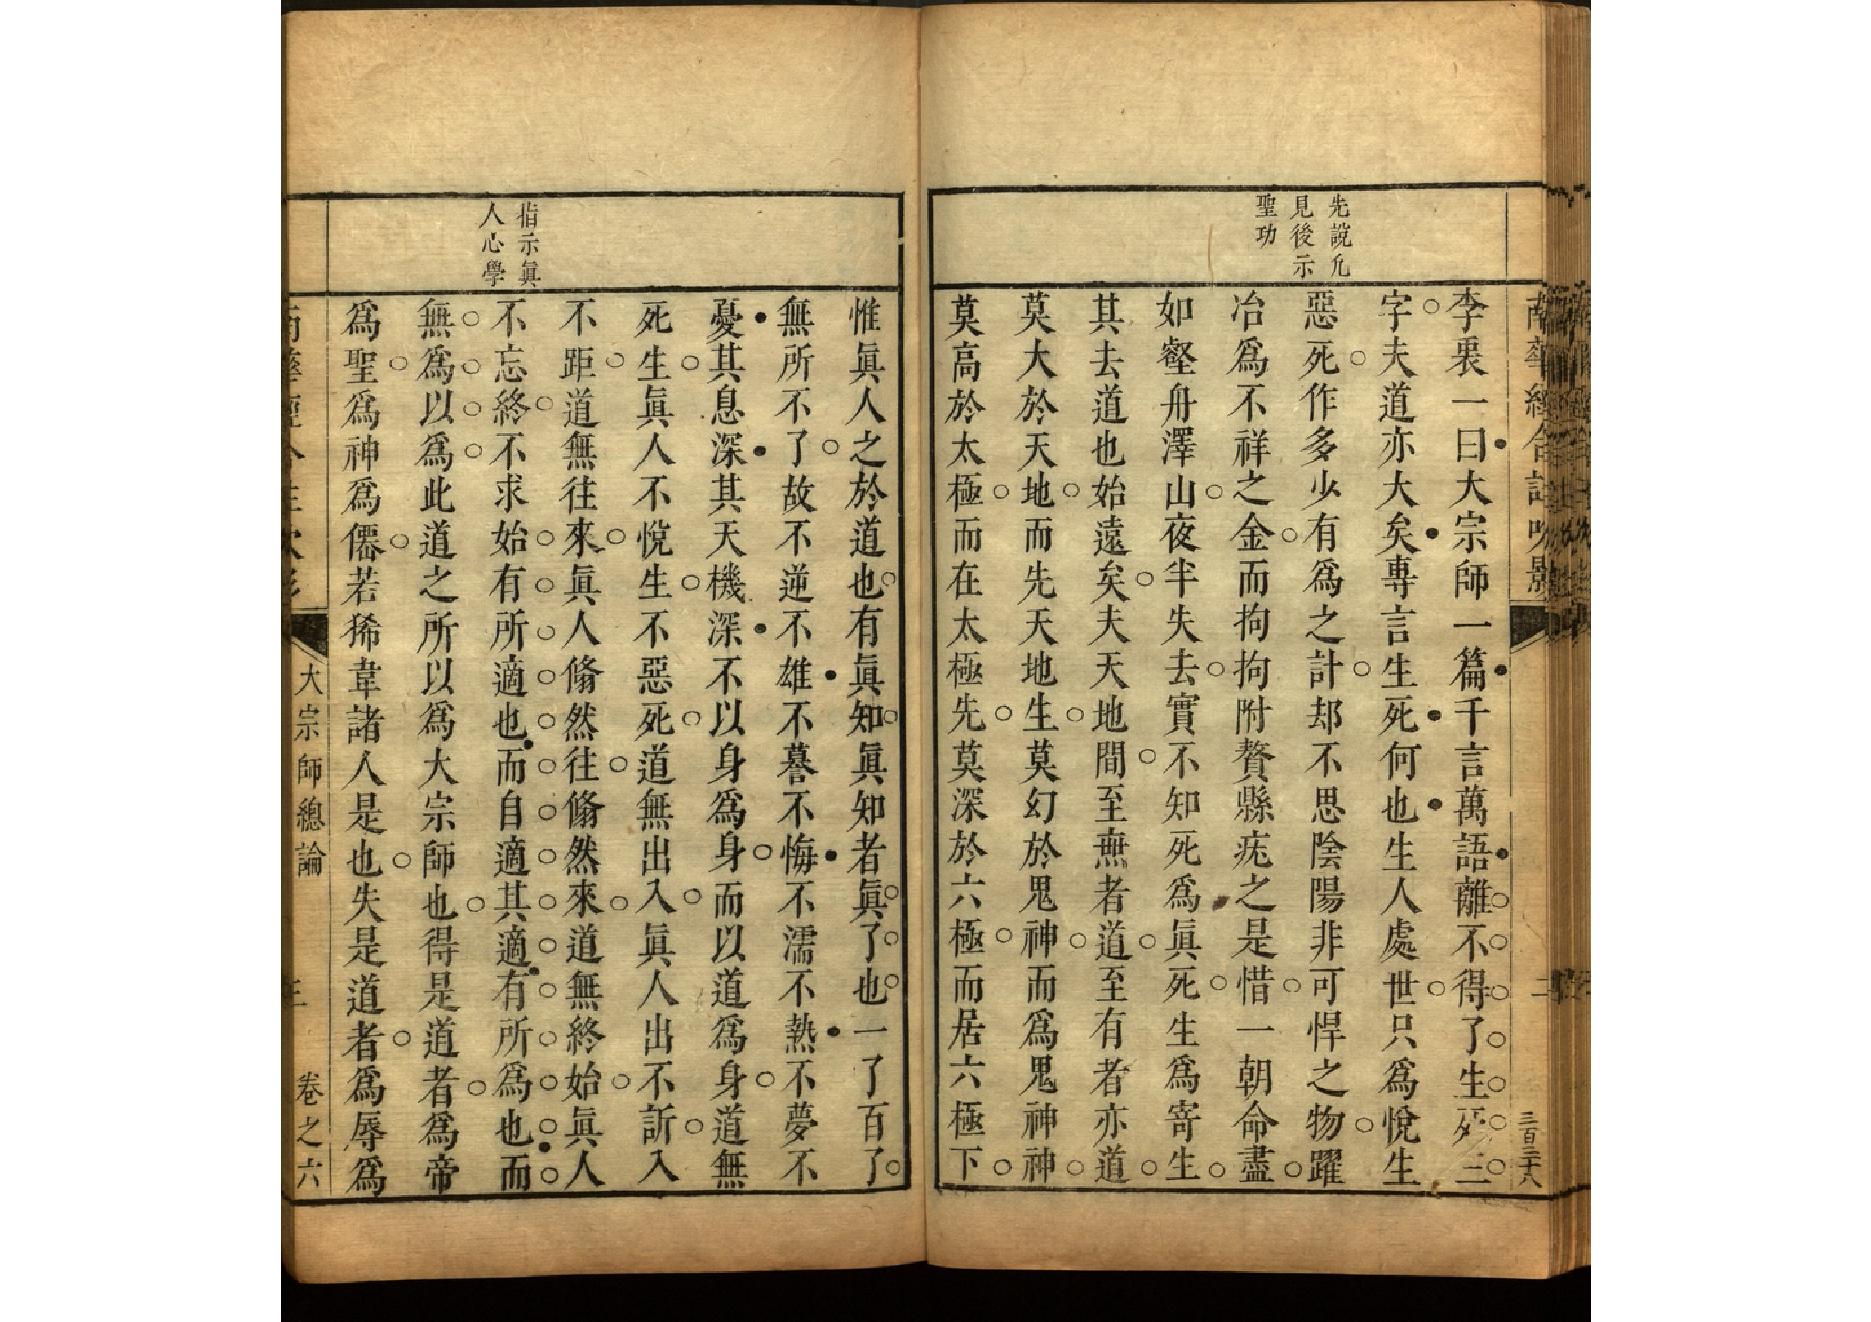 先說允
見後示
聖功
李裠一曰大宗師一篇千言萬語離不得了生死三
字夫道亦大矣專言生死何也生人處世只為悅生
惡死作多少有為之計却不思陰陽非可悍之物躍
冶為不祥之金而拘拘附贅縣疣之是惜一朝命盡
如壑舟澤山夜半失去實不知死為眞死生為寄生
其去道也始遠矣夫天地間至無者道至有者亦道
莫大於天地而先天地生莫幻於鬼神而為鬼神神
莫高於太極而在太極先莫深於六極而居六極下
指示眞
人心學
惟眞人之於道也有眞知眞知者眞了也一了百了
無所不了故不逆不雄不謩不悔不濡不熱不夢不
憂其息深其天機深不以身為身而以道為身道無
死生眞人不悅生不惡死道無出入眞人出不訢入
不距道無往來眞人翛然往翛然來道無終始眞人
不忘終不求始有所適也而自適其適有所為也而
無為以為此道之所以為大宗師也得是道者為帝
為聖為神為僊若狶韋諸人是也失是道者為辱為
大宗師總論
三
卷之六